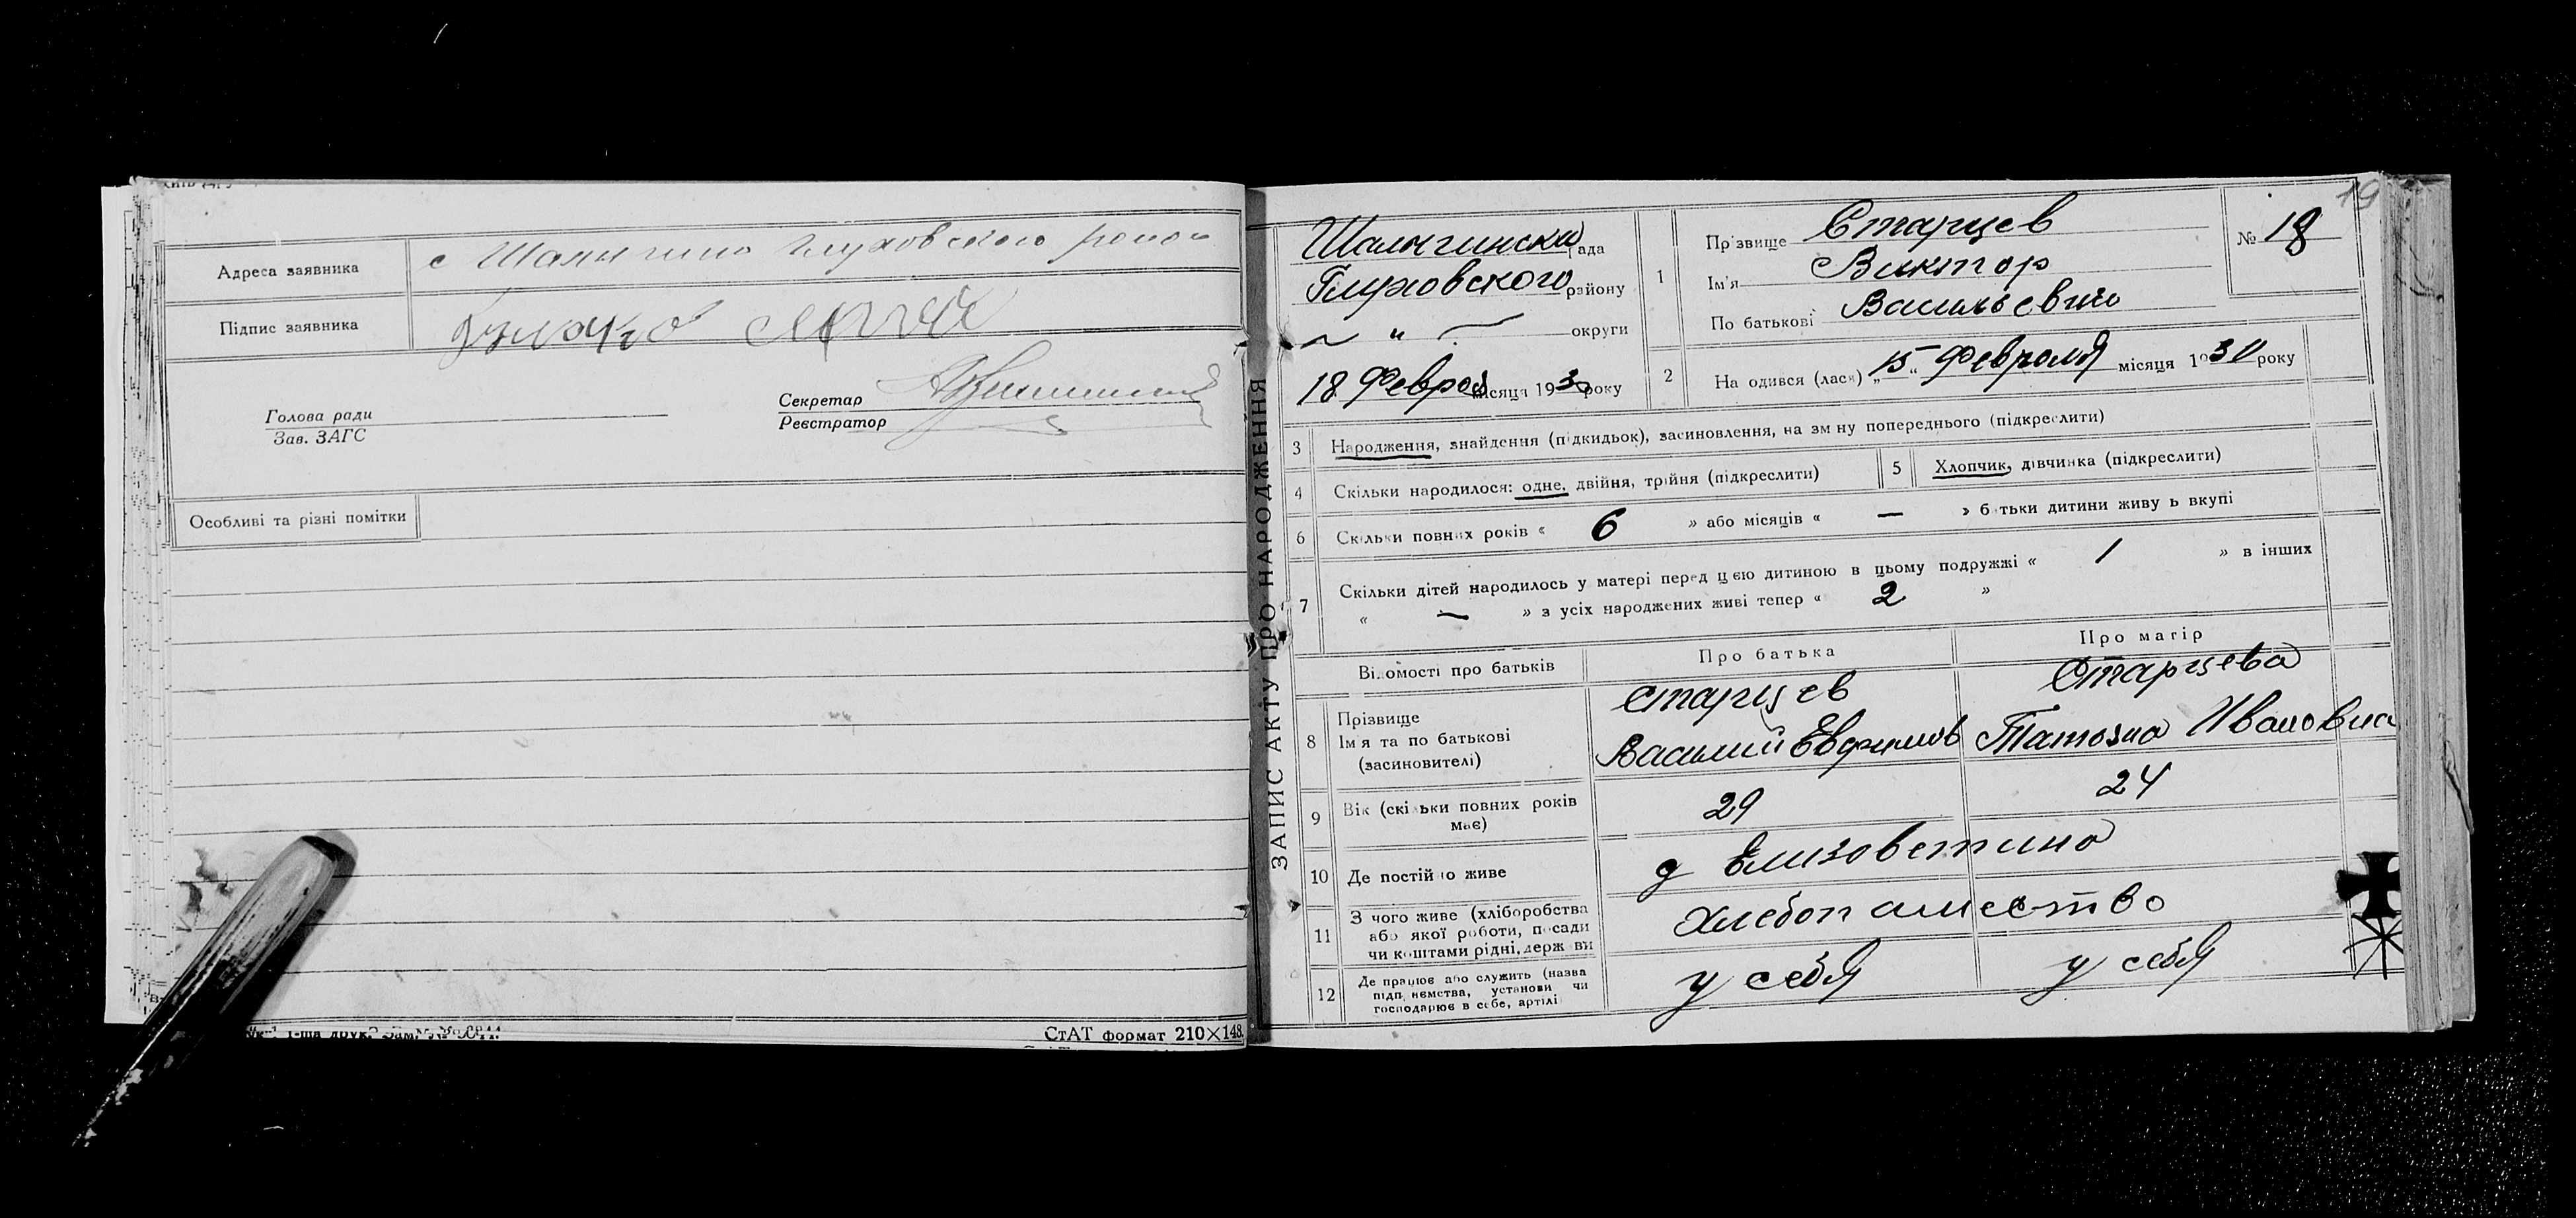 Адреса заявника
с Шалыгино Глуховского район
Підпис заявника
Голова ради
Зав. ЗАГС
Секретар
Реєстратор
Особливі та різні помітки
СтАТ формат 210×148.
ЗАПИС АКТУ ПРО НАРОДЖЕННЯ
19
Шалыгинска рада
Глуховского району
〃 округи
18 Феврал місяця 1930 року
1
Прізвище Старцев
Ім'я Виктор
По батькові Васильевич
№ 18
2
На одився (лася) „15“ Февраля місяця 1930 року
3 Народження, знайдення (підкидьок), засиновлення, на зміну попереднього (підкреслити)
4 Скільки народилося: одне, двійня, трійня (підкреслити)
5 Хлопчик, дівчинка (підкреслити)
6 Скільки повних років « 6 » або місяців « — » батьки дитини живуть вкупі
7 Скільки дітей народилось у матері перед цією дитиною в цьому подружжі « 1 » в інших
« — » з усіх народжених живі тепер « 2 »
Відомості про батьків
Про батька
Про матір
8 Прізвище
Ім'я та по батькові
(засиновителі)
Старцев
Василий Евфимов
Старцева
Татьяна Ивановна
9 Вік (скільки повних років
має)
29
24
10 Де постійно живе
д Елизоветино
11 З чого живе (хліборобства
або якої роботи, посади
чи коштами рідні, держави
Хлебопашество
12 Де працює або служить (назва
підприємства, установи чи
господарює в себе, артілі
у себя
у себя